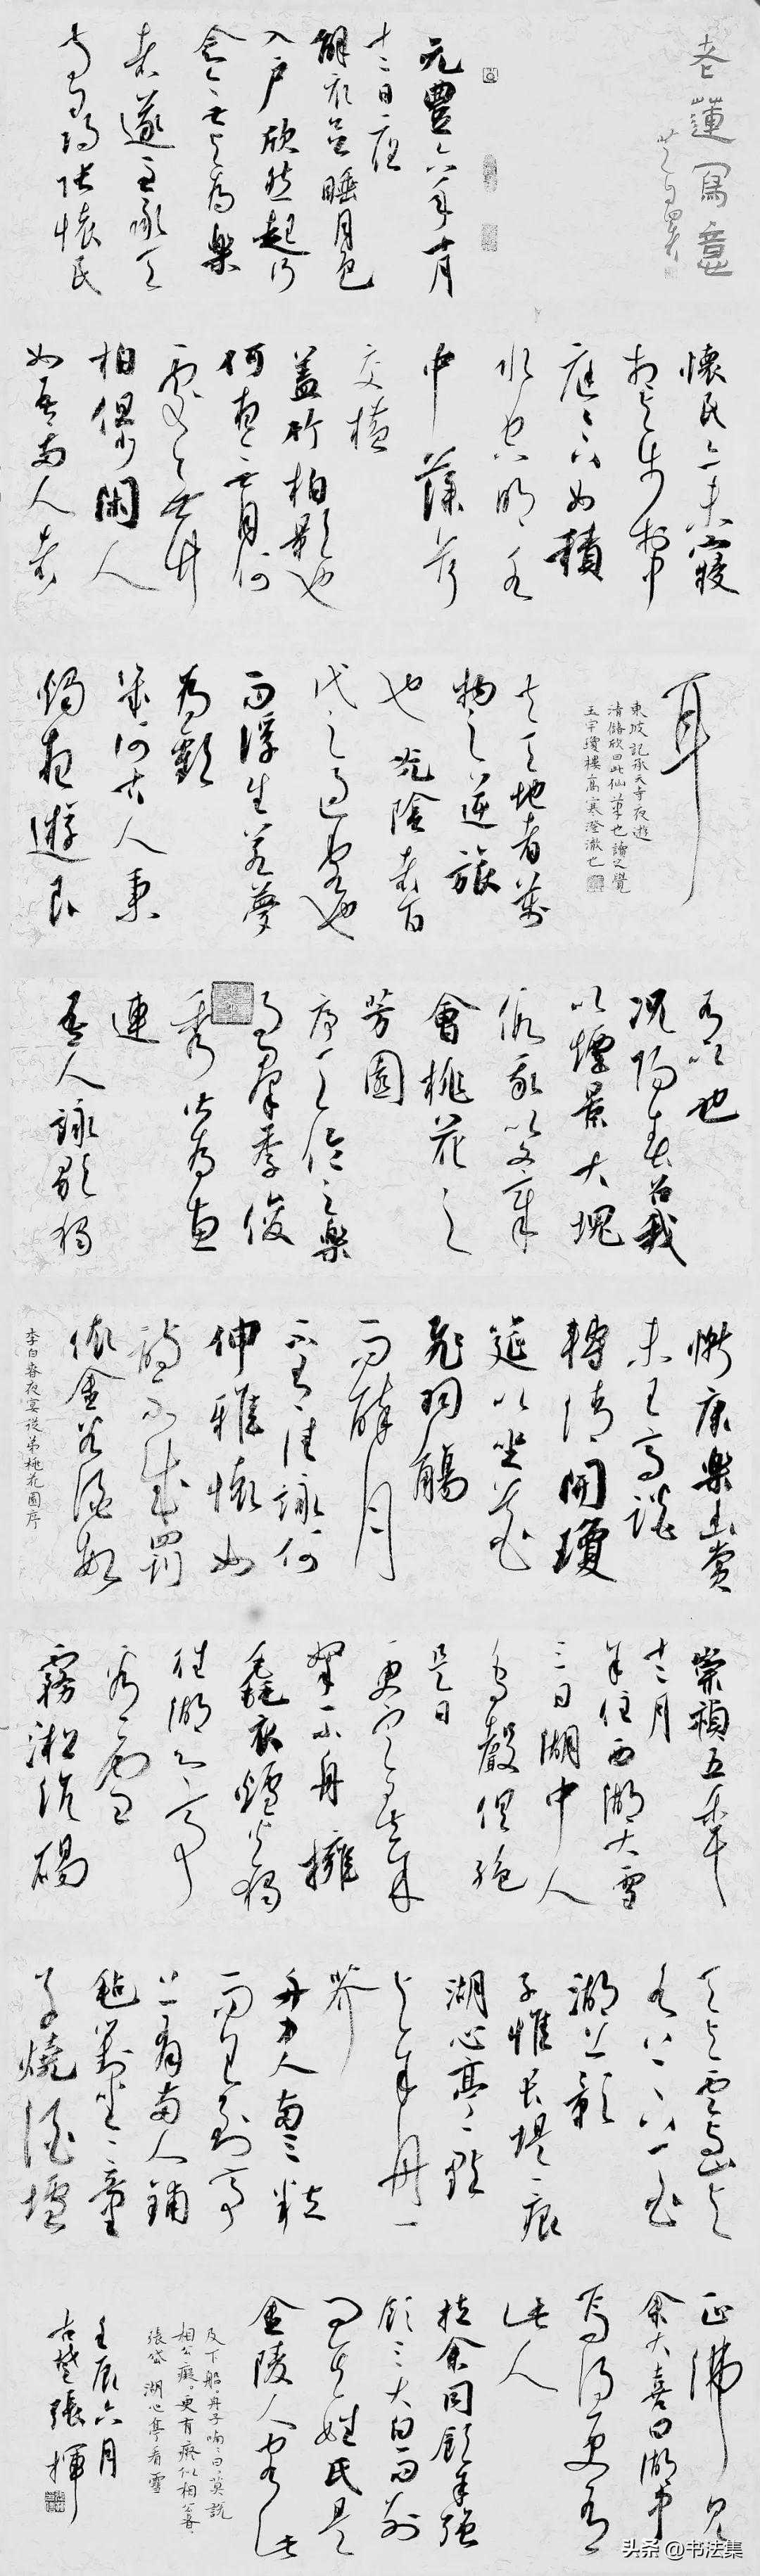 老蓮寫意
元豐六年十月
十二日夜
解衣欲睡月色
入戶欣然起行
念無與為樂
者遂至承天
寺尋張懷民
懷民亦未寢
相與步於中
庭庭下如積
水空明水
中藻荇
交橫
蓋竹柏影也
何夜無月何
處無竹
柏但少閑人
如吾兩人者
耳
東坡記承天寺夜遊
清儲欣曰此仙筆也讀之覺
玉宇瓊樓高寒澄澈也
夫天地者萬
物之逆旅
也光陰者百
代之過客也
而浮生若夢
為歡
幾何古人秉
燭夜遊良
有以也
況陽春召我
以煙景大塊
假我以文章
會桃花之
芳園
序天倫之樂
事羣季俊
秀皆為惠
連
吾人詠歌獨
慚康樂幽賞
未已高談
轉清開瓊
筵以坐花
飛羽觴
而醉月
不有佳詠何
伸雅懷如
詩不成罰
依金谷酒數
李白春夜宴從弟桃花園序
崇禎五年
十二月
余住西湖大雪
三日湖中人
鳥聲俱絕
是日
更定矣余
拏一小舟擁
毳衣爐火獨
往湖心亭
看雪
霧淞沆碭
天與雲與山與
水上下一白
湖上影
子惟長堤一痕
湖心亭一點
與余舟一
芥
舟中人兩三粒
而已到亭
上有兩人鋪
氈對坐一童
子燒酒爐
正沸見
余大喜曰湖中
焉得更有
此人
拉余同飲余強
飲三大白而別
問其姓氏是
金陵人客此
及下船舟子喃喃曰莫說
相公癡更有癡似相公者
張岱湖心亭看雪
壬辰六月
古楚張揮
头条 @书法集